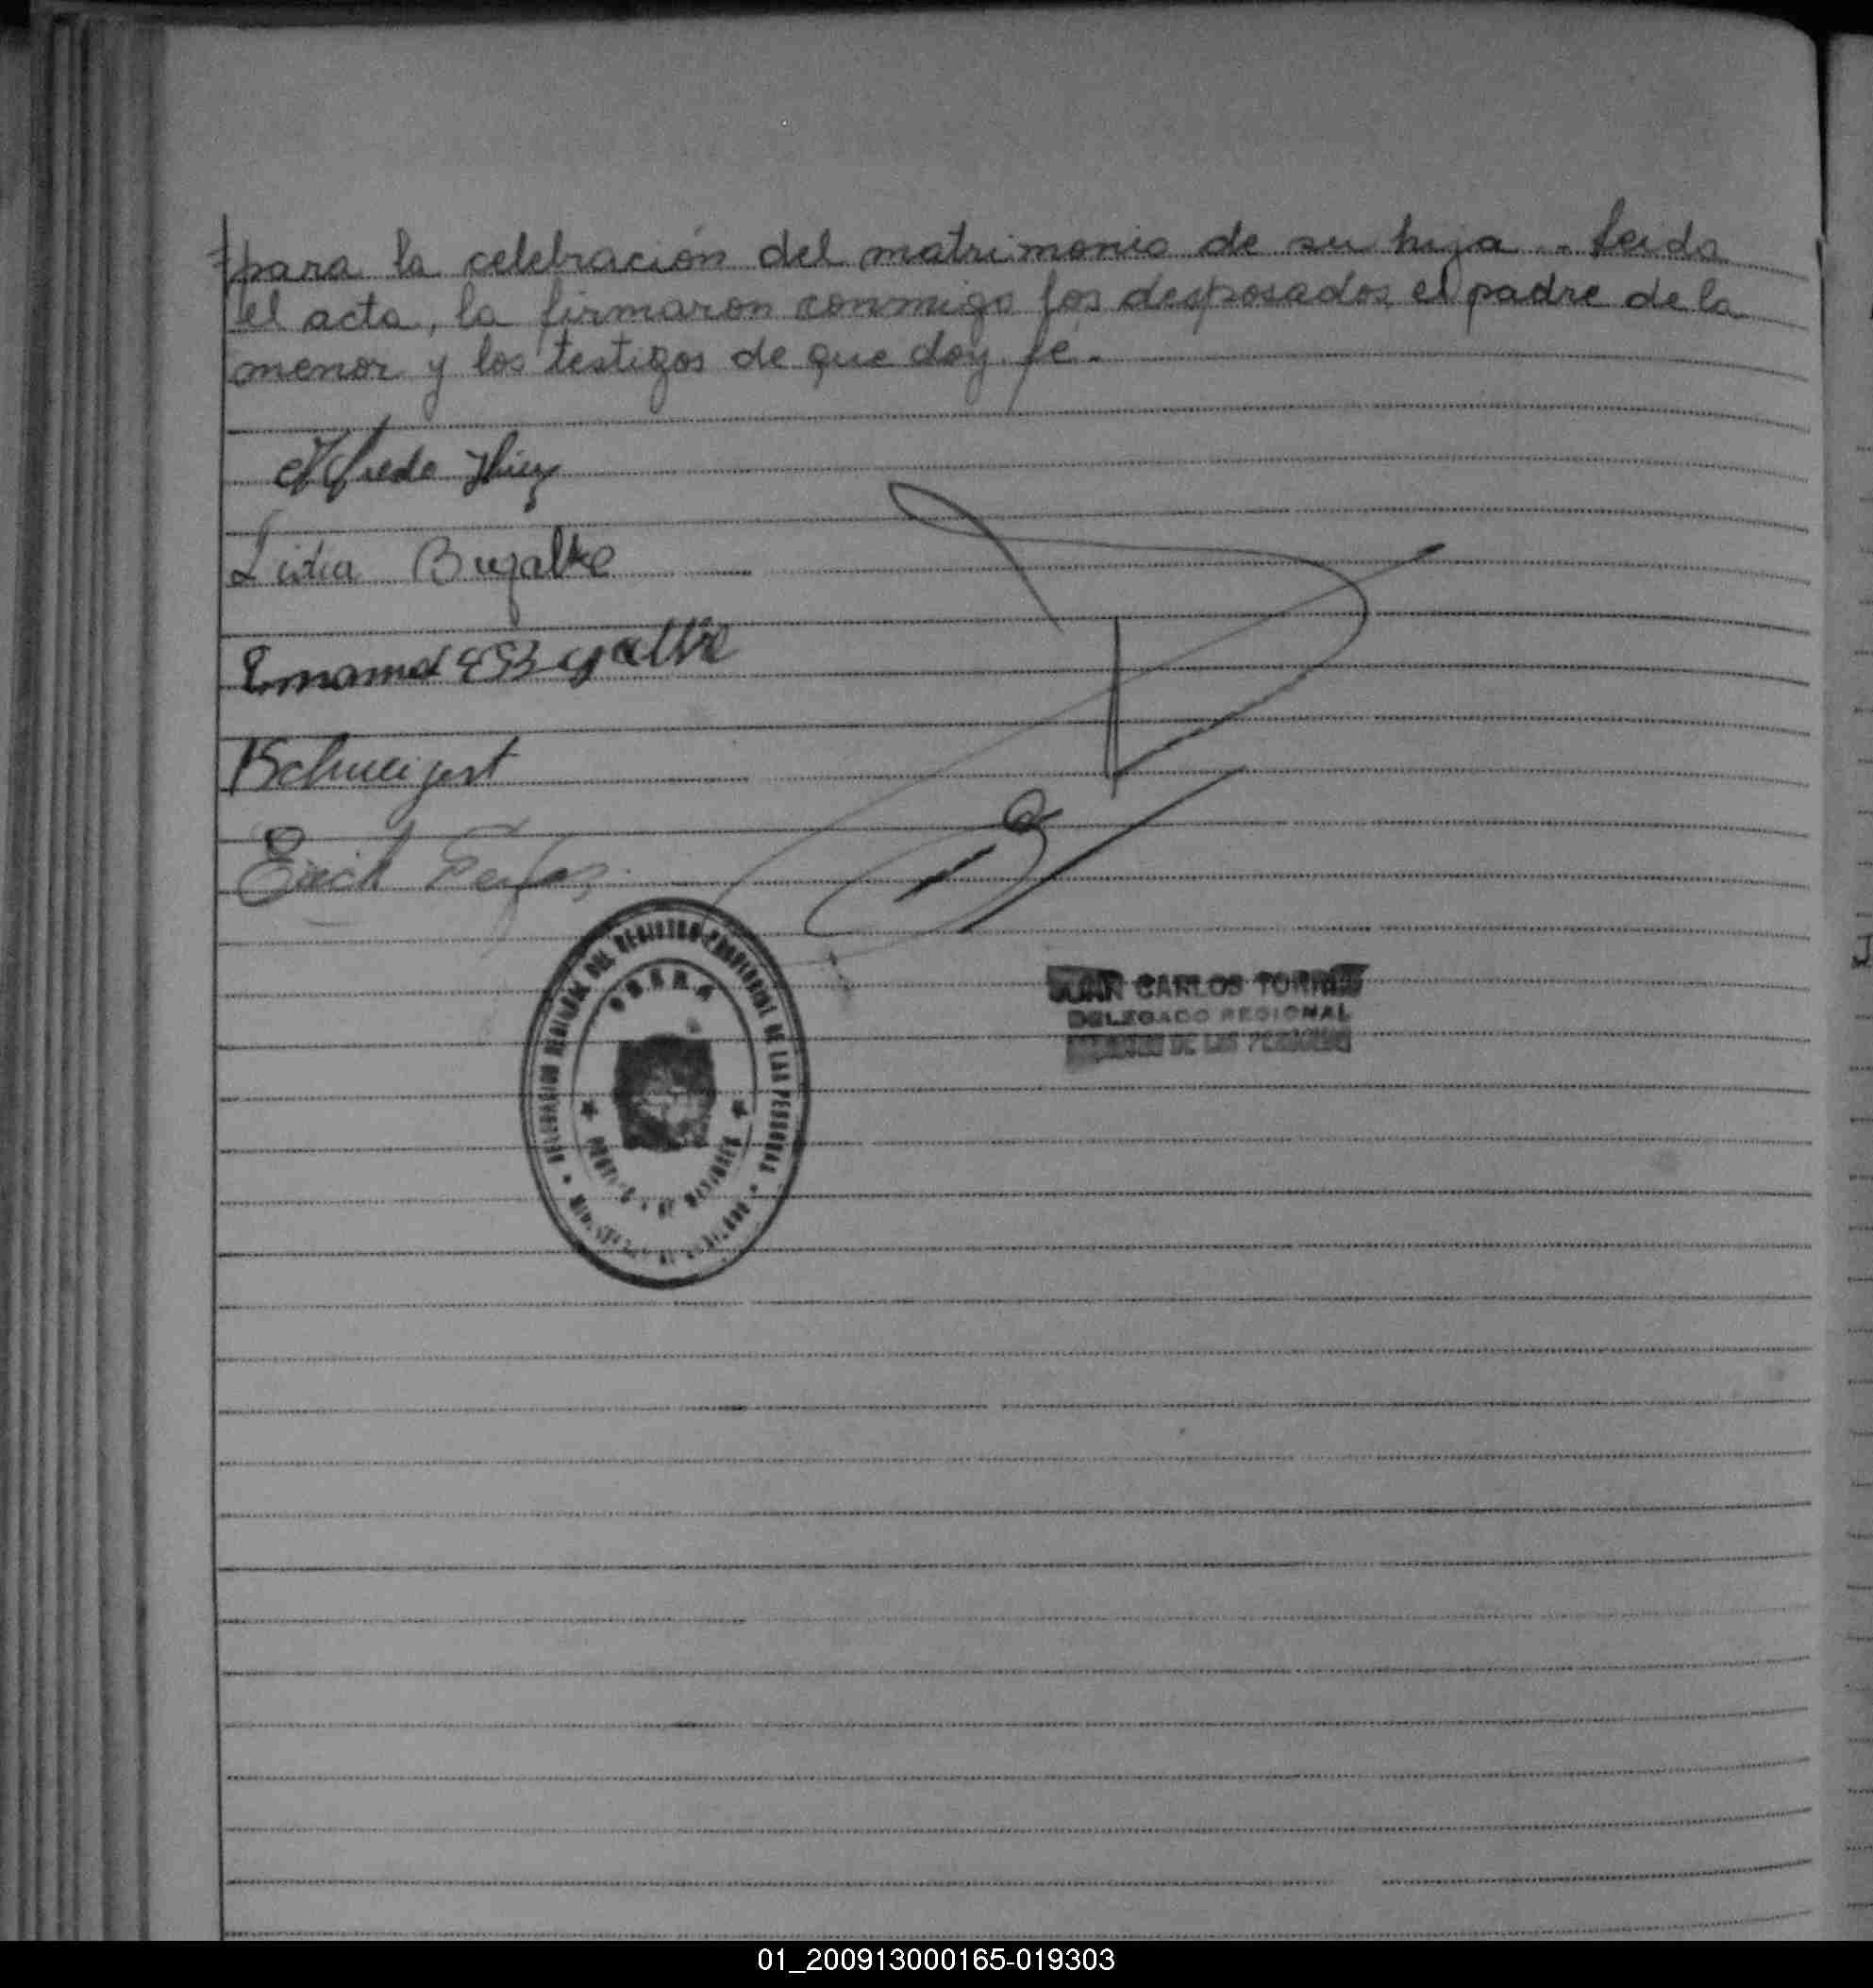 para la celebración del matrimonio de su hija.- Leida
el acta, la firmaron conmigo los desposados, el padre de la
menor y los testigos de que doy fé.-
Alfredo
Lidia Bugalke
Schweigert
Erich
DELEGACION REGIONAL DEL REGISTRO PROVINCIAL DE LAS PERSONAS
OBERA
JUAN CARLOS TORRES
DELEGADO REGIONAL
DE LAS PERSONAS
01_200913000165-019303